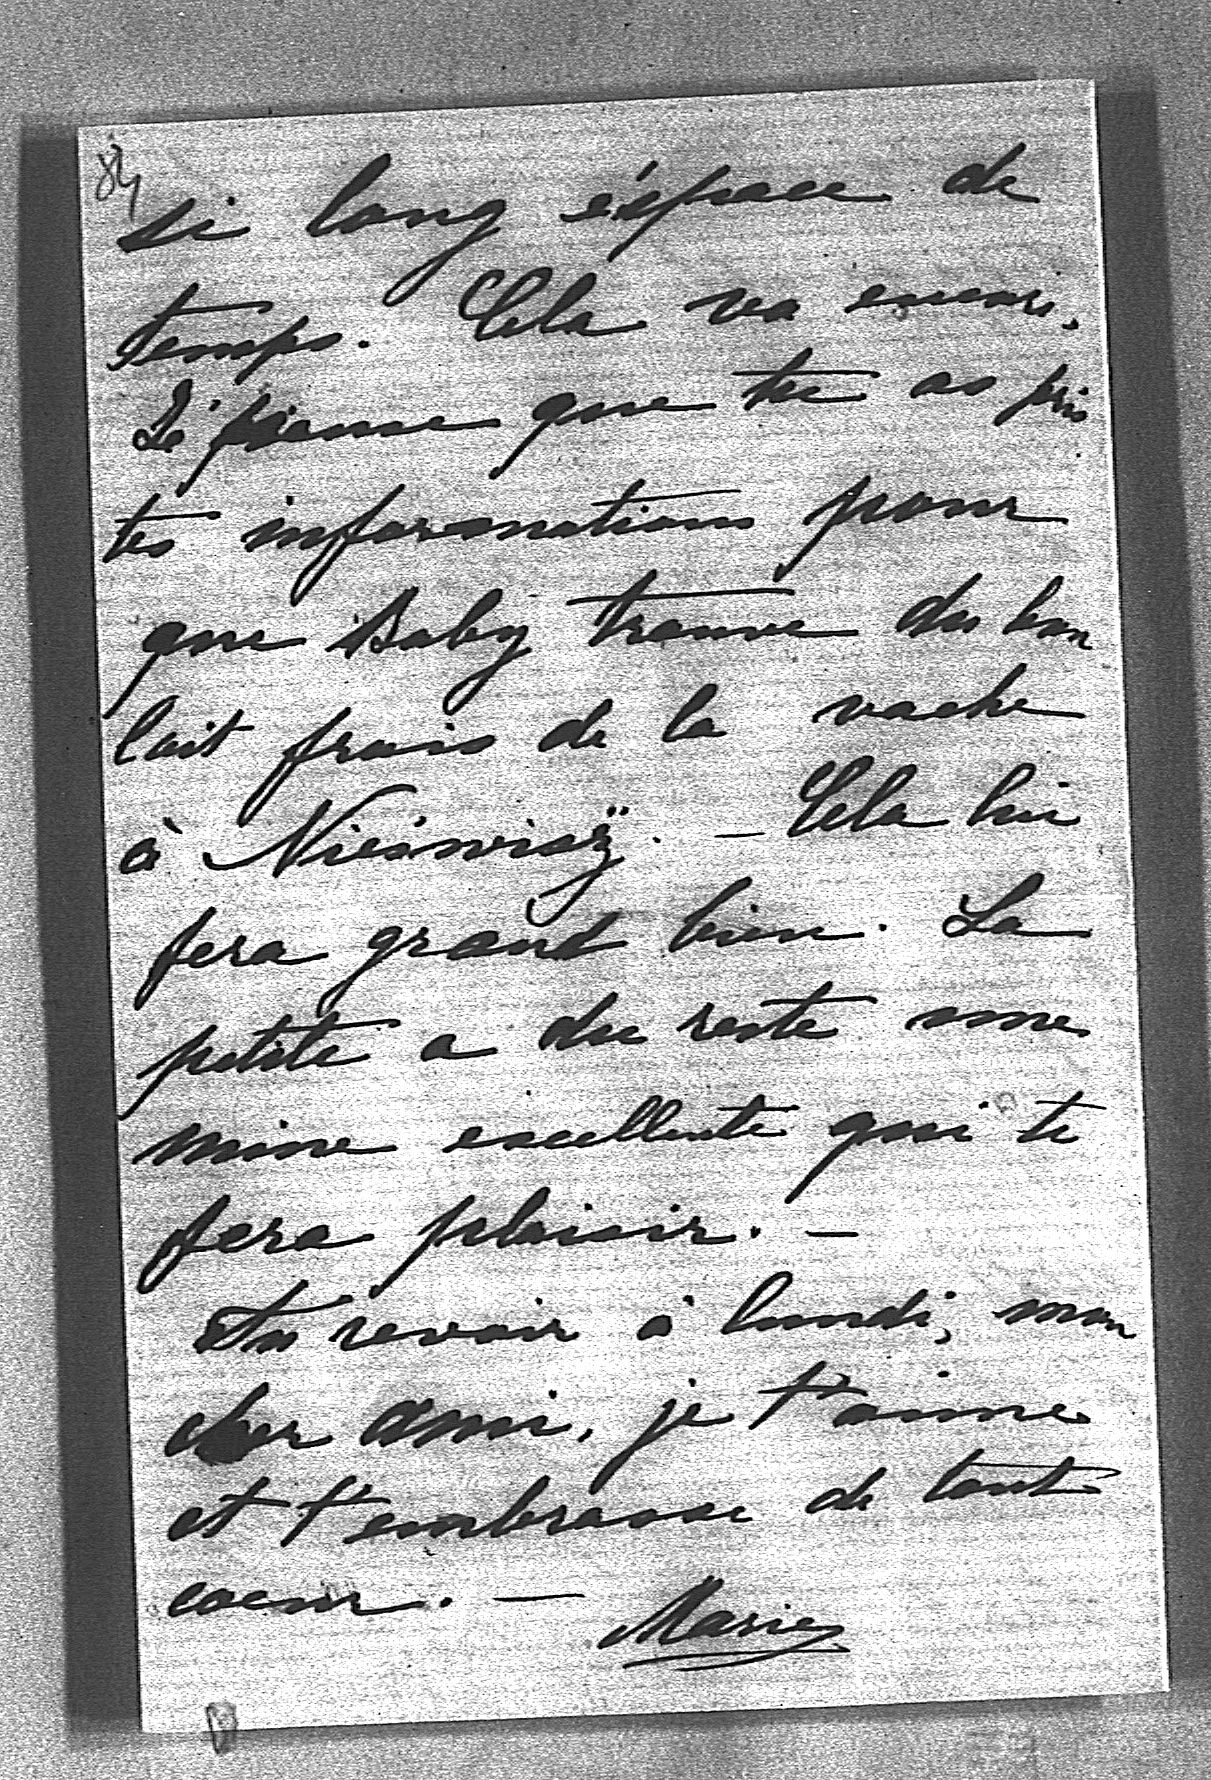 84
si long éspace de
temps. Cela va encore.
Je pense que tu as pris
tes informations pour
que Baby trouve du bon
lait frais de la vache
à Nieświez. — Cela lui
fera grand bien. La
petite a du reste une
mine excellente qui te
fera plaisir. —
Au revoir à lundi, mon
cher ami, je t'aime
et t'embrasse de tout
coeur. —
Marie